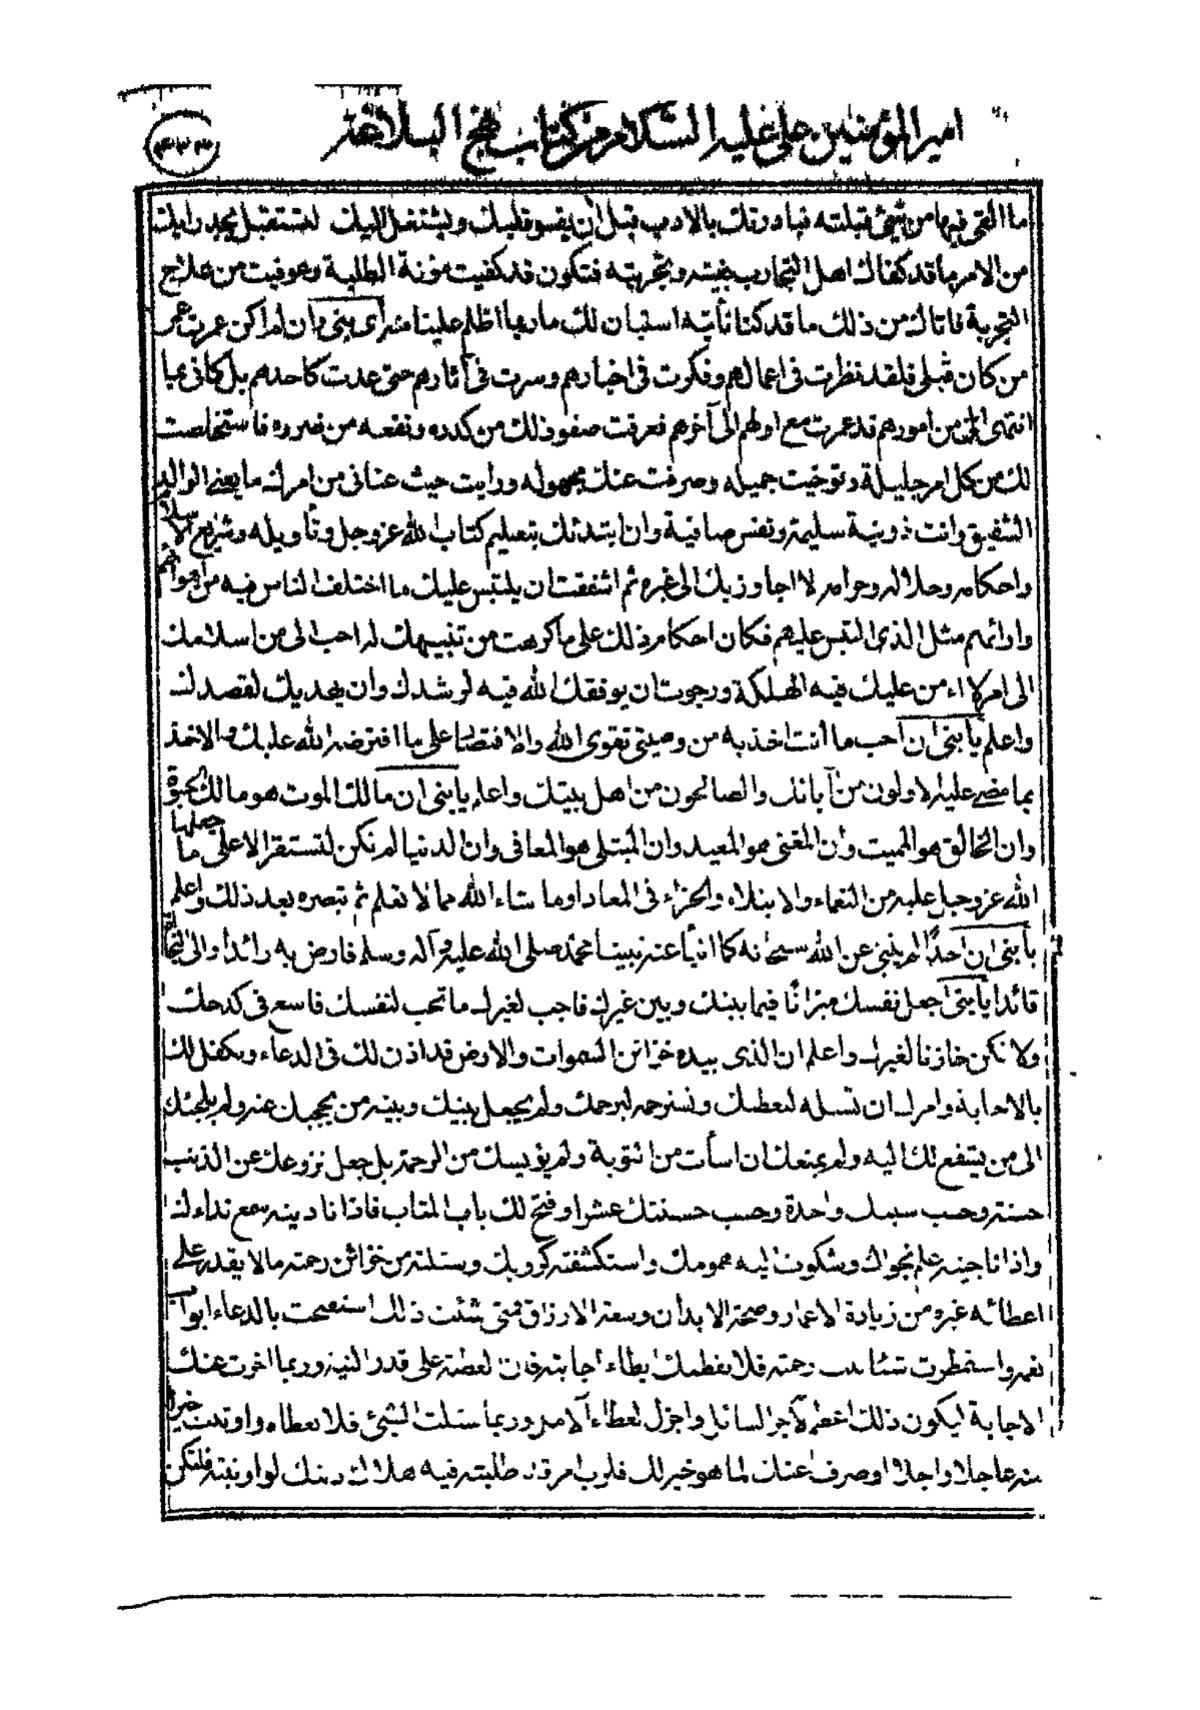 امير المؤمنين على عليه السلام من كتاب نهج البلاغة
ما القى فيها من شيئ قبلته فبادرتك بالادب قبل أن يقسو قلبك ويشتغل لبك لتستقبل بجد رايك
من الامر ما قد كفاك اهل التجارب بغيته وتجربته فتكون قد كفيت مؤنة الطلبة وعوفيت من علاج
التجربة فاتاك من ذلك ما قد كنا نأتيه استبان لك ما ربما اظلم علينا منه اى بنى وان لم اكن عمرت عمر
من كان قبلى فلقد نظرت فى اعمالهم وفكرت فى اخبارهم وسرت فى آثارهم حتى عدت كاحدهم بل كانى بما
انتهى الى من امورهم قد عمرت مع اولهم الى آخرهم فعرفت صفو ذلك من كدره ونفعه من ضرره فاستخلصت
لك من كل امر جليلة وتوخيت جميله وصرفت عنك مجهوله ورايت حيث عنانى من امرك ما يعنى الوالد
الشفيق وانت ذو نية سليمة ونفس صافية وان ابتدئك بتعليم كتاب الله عز وجل وتأويله وشرايع الاسلام
واحكامه وحلاله وحرامه لا اجاوز بك الى غيره ثم اشفقت ان يلتبس عليك ما اختلف الناس فيه من اهوائهم
وارائهم مثل الذى التبس عليهم فكان احكام ذلك على ما كرهت من تنبيهك له احب الى من اسلامك
الى امر لا اءمن عليك فيه الهلكة ورجوت ان يوفقك الله فيه لرشدك وان يهديك لقصدك
واعلم يا بنى ان احب ما أنت اخذ به من وصيتى تقوى الله والاقتصار على ما افترضه الله عليك والاخذ
بما مضى عليه الاولون من آبائك والصالحون من اهل بيتك واعلم يا بنى ان مالك الموت هو مالك الحيوة
وان الخالق هو المميت وان المفنى هو المعيد وان المبتلى هو المعافى وان الدنيا لم تكن لتستقر الا على ما جعلها
الله عز وجل عليه من النعماء والابتلاء والجزاء فى المعاد او ما شاء الله مما لا تعلم ثم تبصره بعد ذلك واعلم
يا بنى ان احدًا لم ينبئ عن الله سبحانه كما انبأ عنه نبينا محمد صلى الله عليه وآله وسلم فارض به رائدا والى النجاة
قائدا يا بنى اجعل نفسك ميزانًا فيما بينك وبين غيرك فاحبب لغيرك ما تحب لنفسك فاسعه فى كدحك
ولا تكن خازنا لغيرك واعلم ان الذى بيده خزائن السموات والارض قد اذن لك فى الدعاء وتكفل لك
بالاجابة وامرك ان تسئله لعطيك وتسترحمه ليرحمك ولم يجعل بينك وبينه من يحجبك عنه ولم يلجئك
الى من يشفع لك اليه ولم يمنعك ان اسأت من التوبة ولم يؤيسك من الرحمة بل جعل نزوعك عن الذنب
حسنة وحسب سيئك واحدة وحسب حسنتك عشرا وفتح لك باب المتاب فاذا ناديته سمع نداءك
واذا ناجيته علم نجواك وشكوت اليه همومك واستكشفته كروبك وسئلته من خزائن رحمته ما لا يقدر على
اعطائه غيره من زيادة الاعمار وصحة الابدان وسعة الارزاق فمتى شئت ذلك استفتحت بالدعاء ابواب
نعمه واستمطرت شئابيب رحمته فلا يقنطك ابطاء اجابته فان العطية على قدر النية وربما اخرت عنك
الاجابة ليكون ذلك اعظم لأجر السائل واجزل لعطاء الآمل وربما سئلت الشيئ فلا تعطاه واوتيت خيرا
منه عاجلا واجلا او صرف عنك لما هو خير لك فلرب امر قد طلبته فيه هلاك دينك لو اوتيته فلتكن